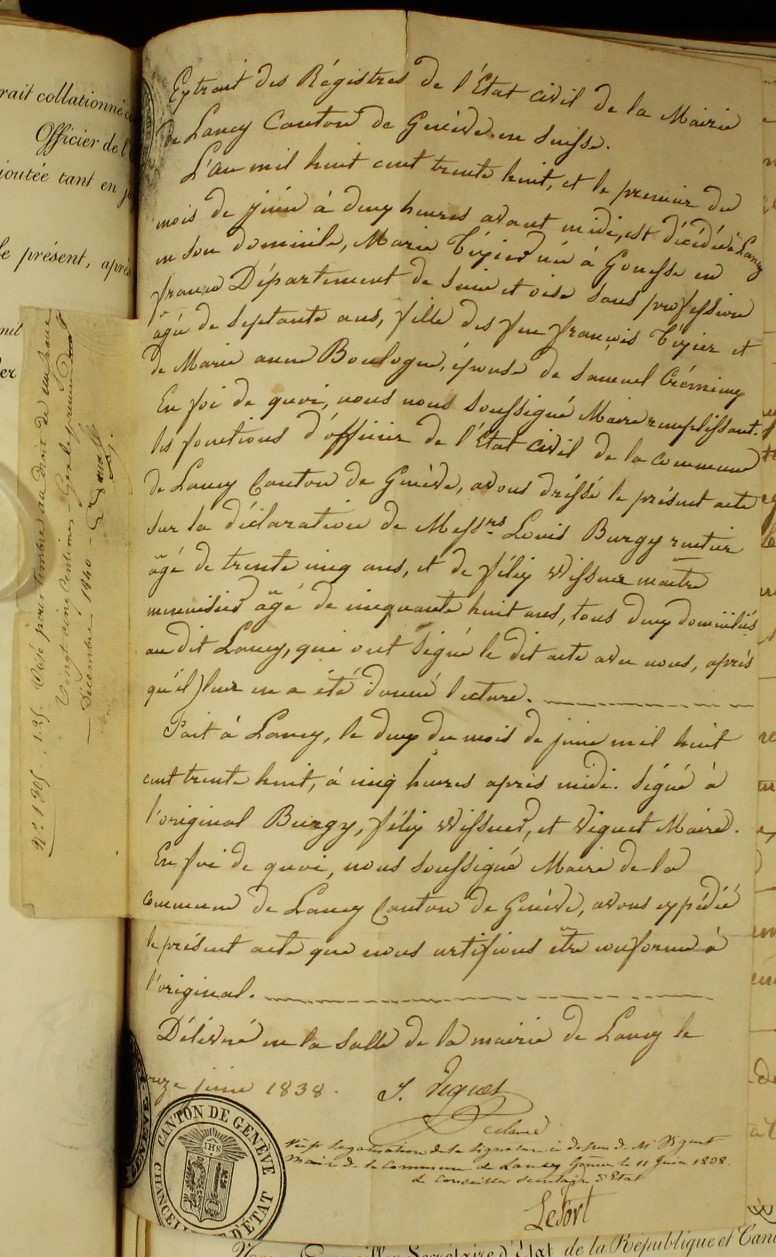 rait collationné
Officier de l'
joutée tant en
le présent, après
Extrait des Régistres de l'Etat civil de la Mairie
de Lancy Canton de Genève en Suisse.
L'an mil huit cent trente huit, et le premier du
mois de juin à deux heures avant midi, est décédée à Lancy
en son domicile, Marie Téxier née à Gonesse en
france Département de Seine et oise sans profession
âgée de septante ans, fille des feu françois Téxier et
de Marie anne Boulogne, épouse de Samuel
En foi de quoi, nous nous soussigné Maire remplissant
les fonctions d'officier de l'Etat civil de la commune
de Lancy Canton de Genève, avons dréssé le présent acte
sur la déclaration de Mess.rs Louis Burgy rentier
âgé de trente cinq ans, et de félix Wissner maitre
menuisier âgé de cinquante huit ans, tous deux domiciliés
au dit Lancy, qui ont signé le dit acte avec nous, après
qu'il leur en a été donné lecture.
Fait à Lancy, le deux du mois de juin mil huit
cent trente huit, à cinq heures après midi. Signé à
l'original Burgy, félix Wissner, et Viguet Maire.
En foi de quoi, nous soussigné Maire de la
commune de Lancy Canton de Genève, avons expédié
le présent acte que nous certifions être conforme à
l'original.
Délivré en la Salle de la mairie de Lancy le
onze juin 1838. J. Viguet
Vu pour légalisation de la signature ci dessus de Mr Viguet
Maire de la Commune de Lancy Genève le 11 Juin 1838.
Le Conseiller Secrétaire d'Etat
Lefort
CANTON DE GENÈVE
CHANCELLERIE D'ÉTAT
IHS
Visé pour timbre au droit de
Vingt cinq Centimes
Décembre 1840
Conseiller Secrétaire d'État de la République et Can